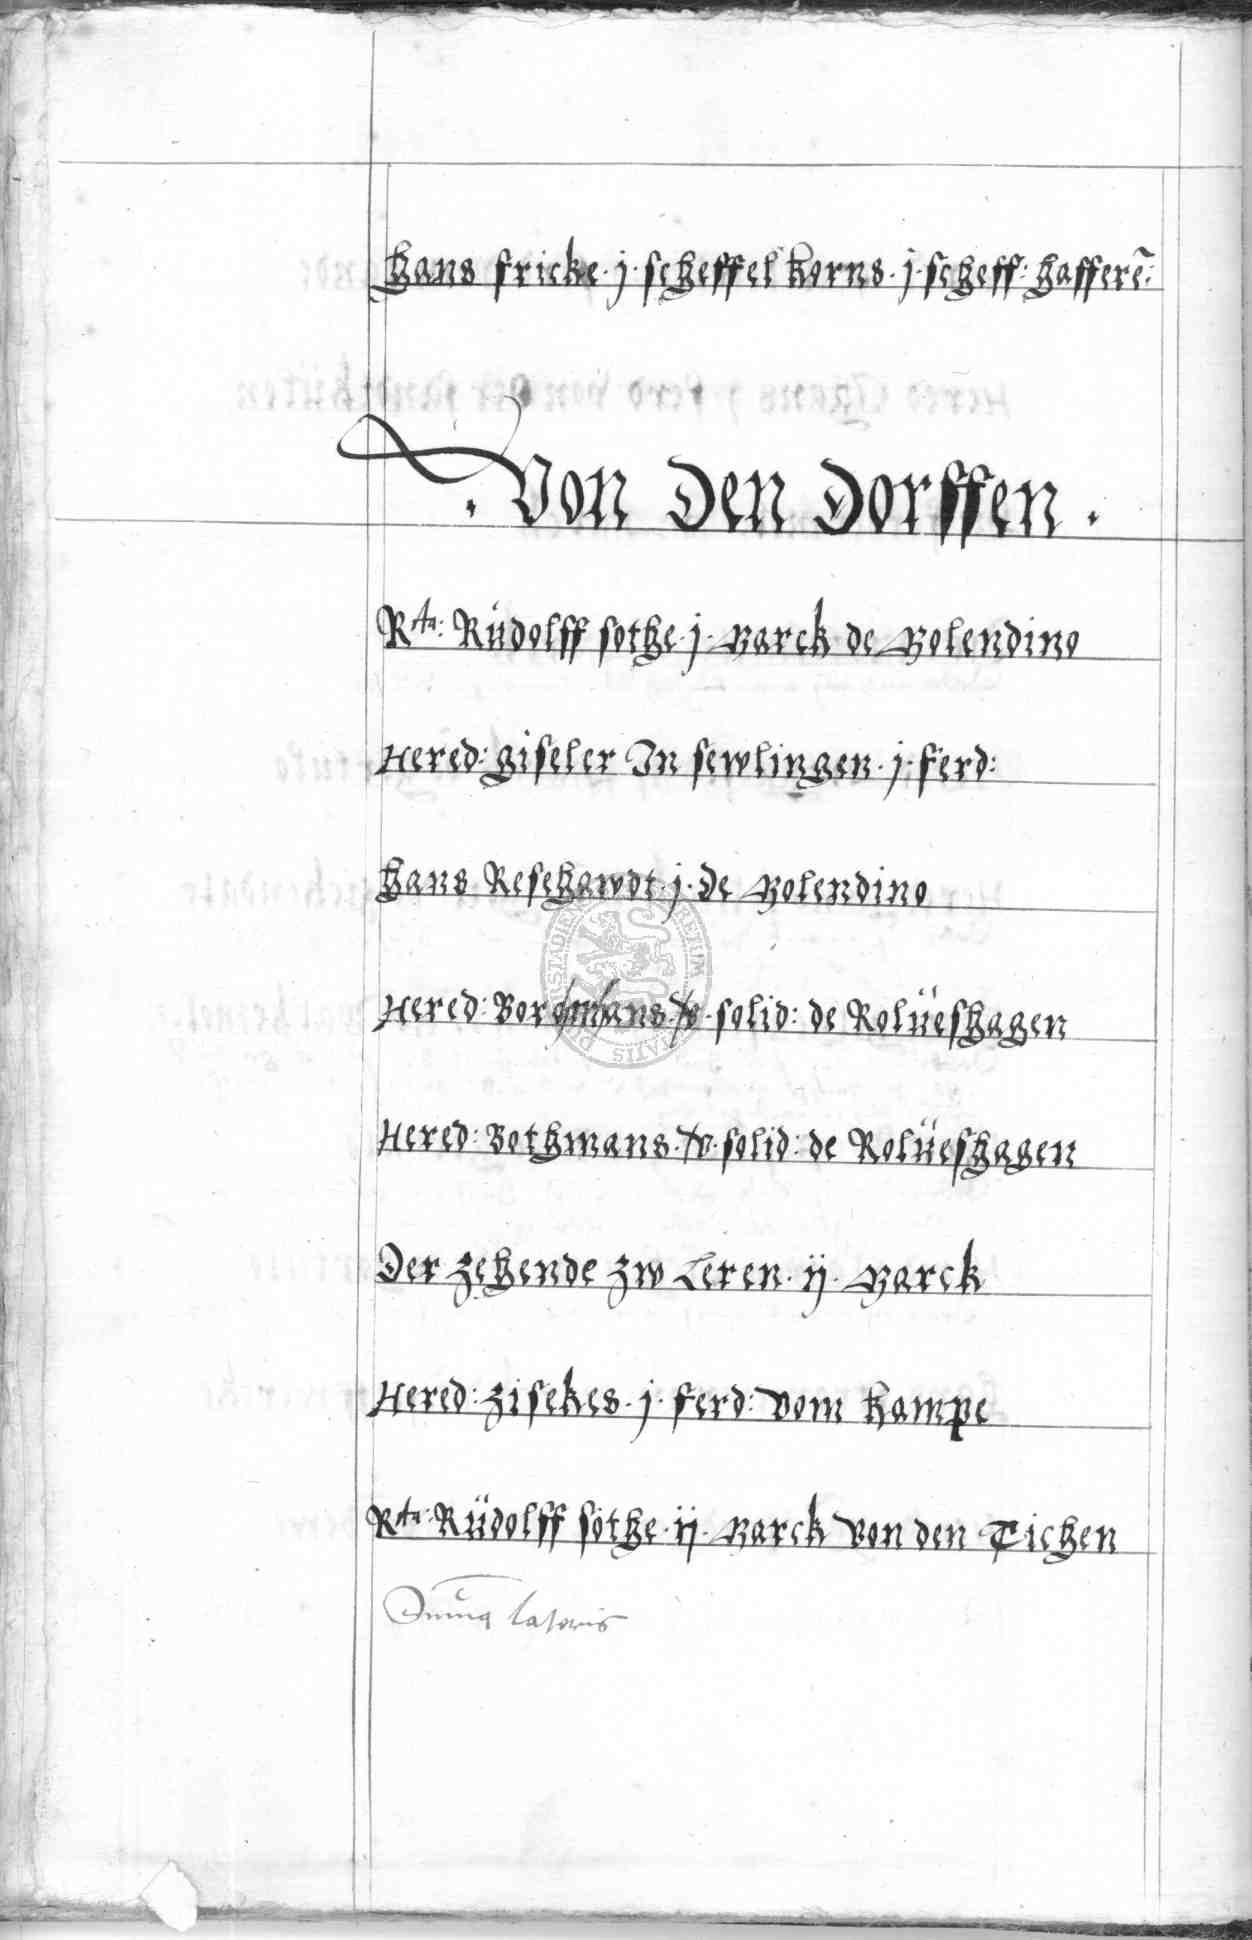 Hans fricke · j · scheffel korns · j · scheff: hafferē:
· Von Den Dorffen ·
Rta: Rŭdolff sothe · j · Marck de Molendino
Hered: giseler In sewlingen · j · ferd:
Hans Reschawdt · j · de Molendino
Hered: solid: de Rolŭeshagen
Hered: Bothmans · xv · solid: de Rolŭeshagen
Der zehende zw Leren · ij · Marck
Hered: zisekes · j · ferd: vom kampe
Rta: Rŭdolff sothe · ij · Marck von den Tichen
Suma lateris